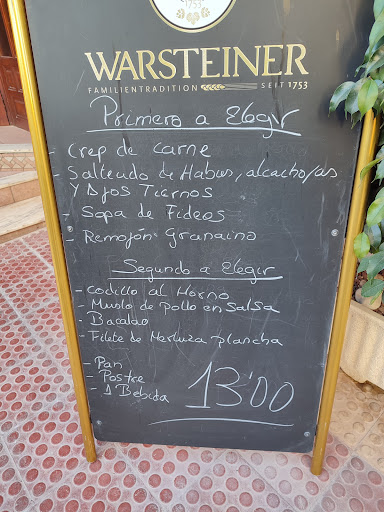 1753
WARSTEINER
FAMILIENTRADITION SEIT 1753
Primero a Elegir
- Crep de carne
- Salteado de Habas, alcachofas
Y Ajos Tiernos
- Sopa de Fideos
- Remojón Granaino
Segundo a Elegir
- Codillo al Horno
- Muslo de Pollo en Salsa
- Bacalao
- Filete de Merluza plancha
- Pan
- Postre
- 1 Bebida
13'00